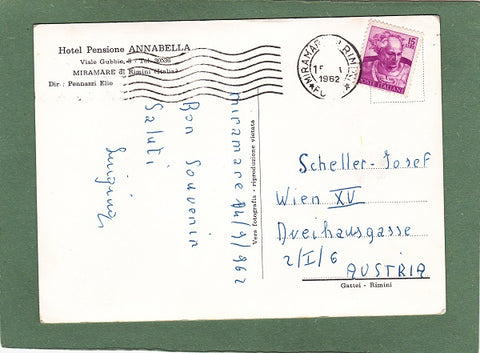 Hotel Pensione ANNABELLA
Viale Gubbio, 8 - Tel. 30338
MIRAMARE di Rimini (Italia)
Dir.: Pennazzi Elio
MIRAMARE RIMINI
1962
15
POSTE ITALIANE
Miramare 14/7/962
Bon Souvenir
Saluti
Vera fotografia - riproduzione vietata
Scheller-Josef
Wien XV
Dreihausgasse
2/I/6
AUSTRIA
Gattei - Rimini